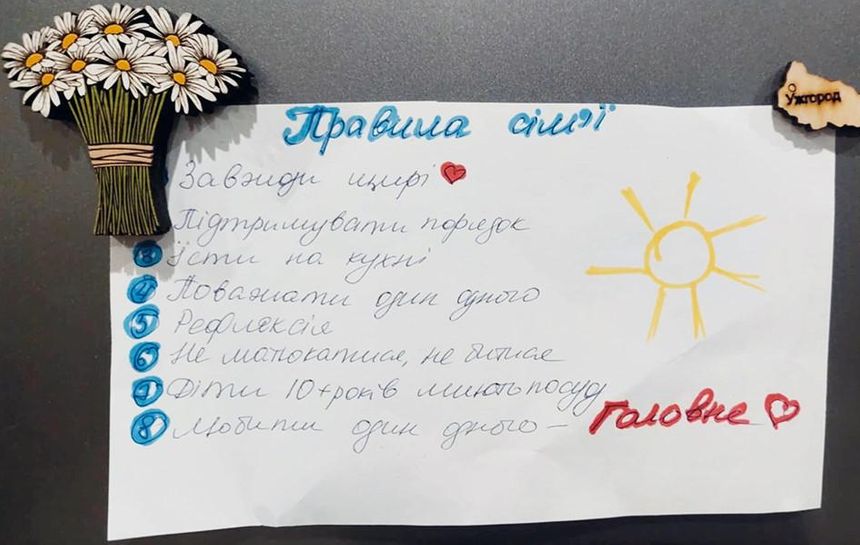 Ужгород
Правила сім'ї
Завжди щирі
Підтримувати порядок
3 Їсти на кухні
4 Поважати один одного
5 Рефлексія
6 Не матюкатися, не битися
7 Діти 10+років миють посуд
8 Любити один одного – Головне